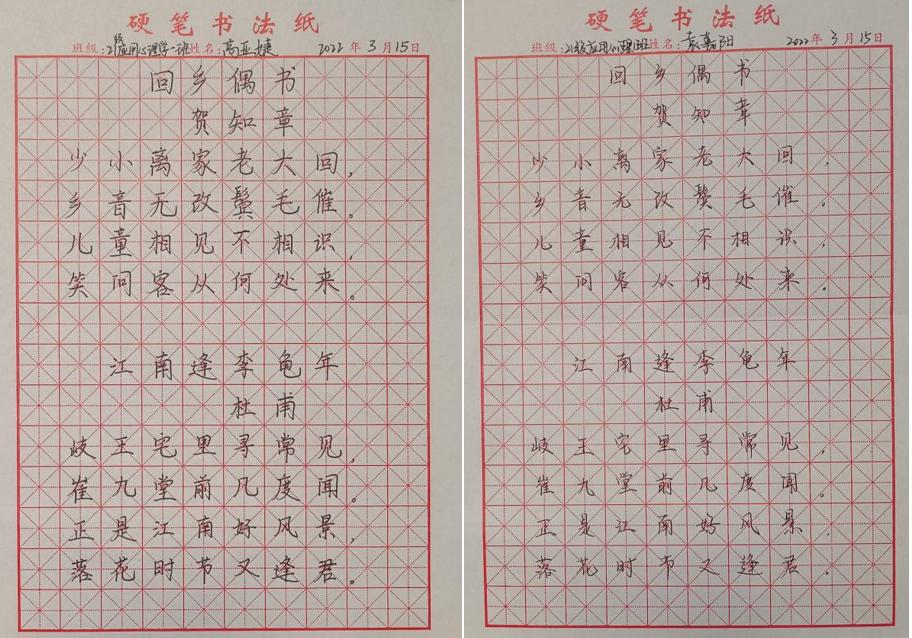 硬笔书法纸
班级：21级应用心理学一班 姓名：高亚婕 2022年3月15日
回乡偶书
贺知章
少小离家老大回，
乡音无改鬓毛催。
儿童相见不相识，
笑问客从何处来。
江南逢李龟年
杜甫
岐王宅里寻常见，
崔九堂前几度闻。
正是江南好风景，
落花时节又逢君。
硬笔书法纸
班级：21级应用心理班 姓名：袁 2022年3月15日
回乡偶书
贺知章
少小离家老大回，
乡音无改鬓毛催。
儿童相见不相识，
笑问客从何处来。
江南逢李龟年
杜甫
岐王宅里寻常见，
崔九堂前几度闻。
正是江南好风景，
落花时节又逢君。